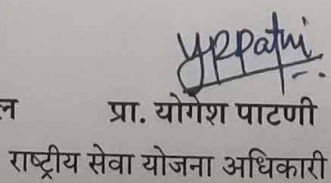 YRPatni
ल
प्रा. योगेश पाटणी
राष्ट्रीय सेवा योजना अधिकारी